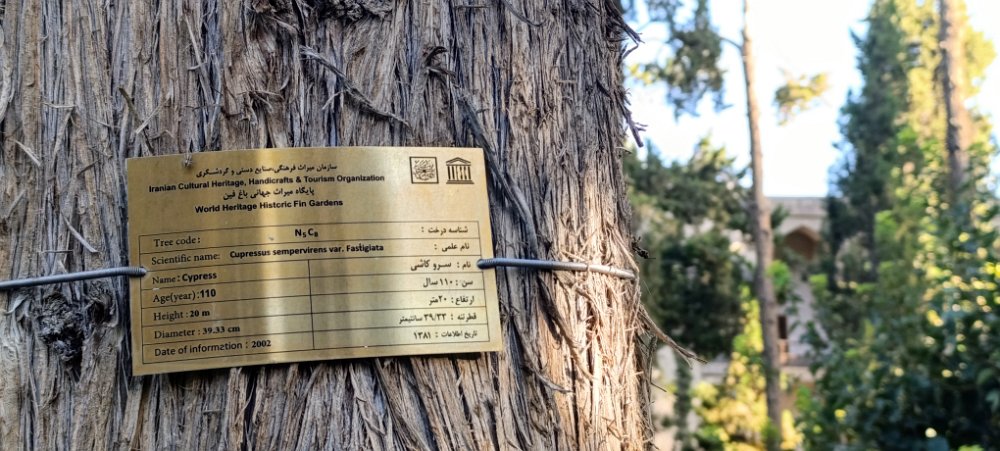 سازمان میراث فرهنگی،صنایع دستی و گردشگری
Iranian Cultural Heritage, Handicrafts & Tourism Organization
پایگاه میراث جهانی باغ فین
World Heritage Historic Fin Gardens
Tree code: N5C8 شناسه درخت :
Scientific name: Cupressus sempervirens var. Fastigiata نام علمی :
Name: Cypress نام : سرو کاشی
Age(year):110 سن : ۱۱۰ سال
Height : 20 m ارتفاع : ۲۰متر
Diameter : 39.33 cm قطر تنه : ۳۹/۳۳ سانتیمتر
Date of information : 2002 تاریخ اطلاعات : ۱۳۸۱